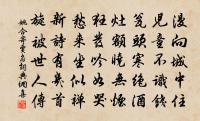 漫向城中住
兒童不識錢
甕頭寒絕酒
灶額曉無煙
狂發吟如哭
愁來坐似禪
新詩有幾首
旋被世人傳
姚合寄賈島詞典網書